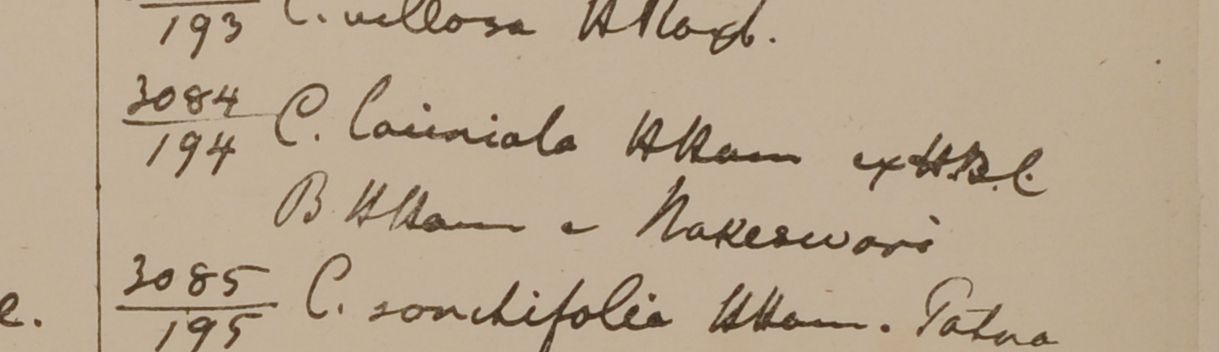 193 C. villosa HRoxb.
3084
194 C. laciniata HHam ex H.B.C.
B HHam e Nakeswari
3085
e. 195 C. sonchifolia HHam. Patna